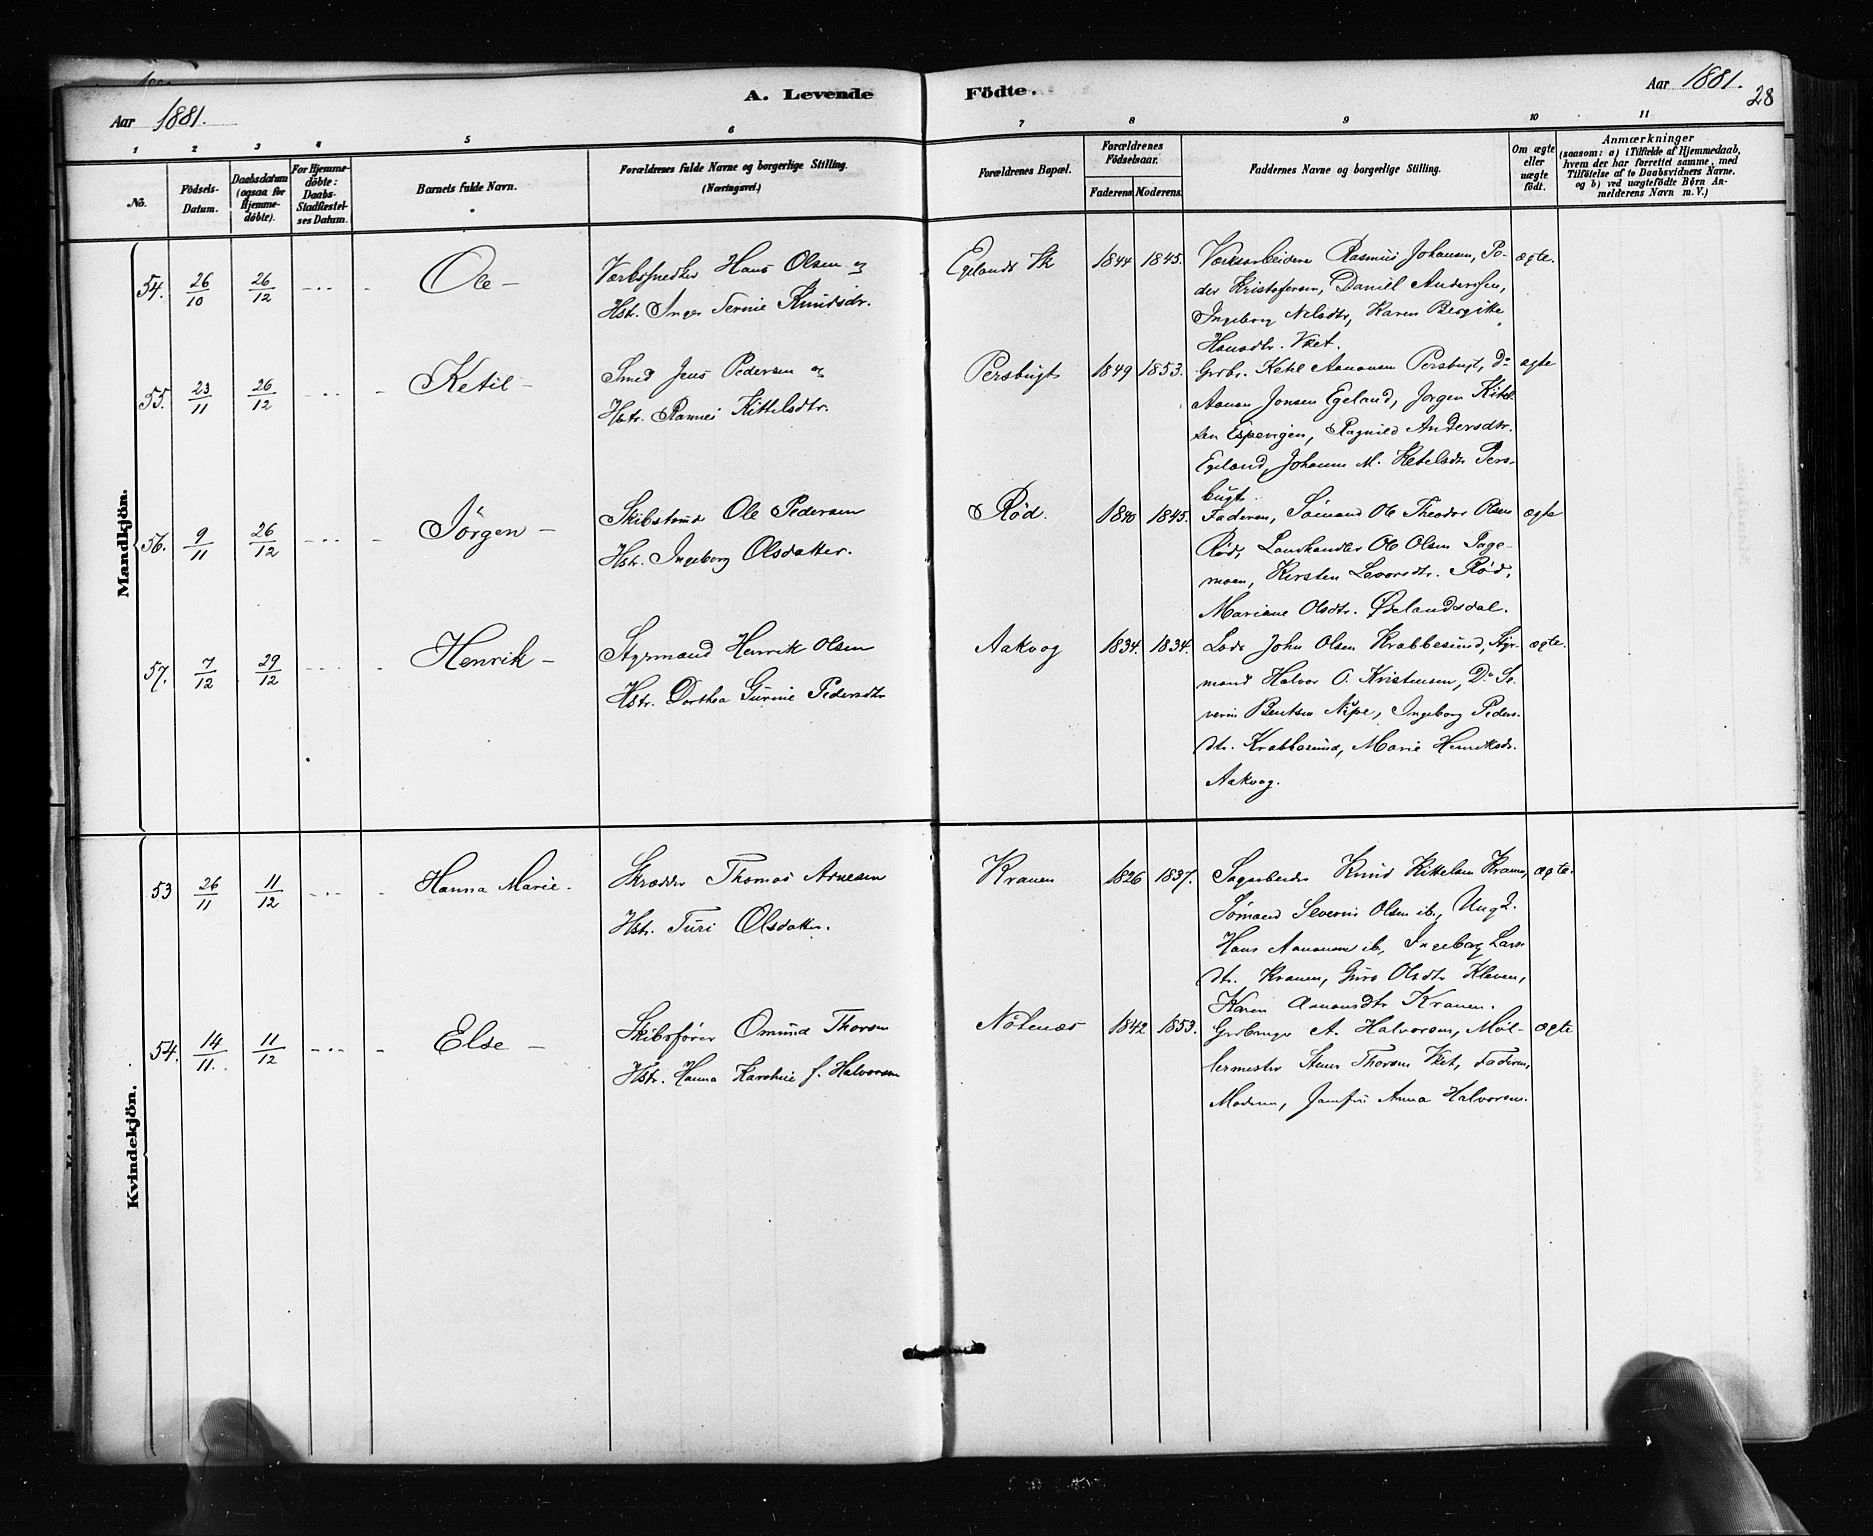 A. Levende Födte.
Aar 1881.
Aar 1881.
28
1 2 3 4 5 6 7 8 9 10 11
No.
Födsels-
Datum.
Daabsdatum
(ogsaa for
Hjemme-
döbte).
For Hjemme-
döbte:
Daabs-
Stadfæstel-
ses Datum.
Barnets fulde Navn.
Forældrenes fulde Navne og borgerlige Stilling.
(Næringsvei.)
Forældrenes Bopæl.
Forældrenes
Födselsaar.
Faderens Moderens.
Faddernes Navne og borgerlige Stilling.
Om ægte
eller
uægte
födt.
Anmærkninger
(saasom: a) i Tilfælde af Hjemmedaab,
hvem der har forrettet samme, med
Tilföielse af to Daabsvidners Navne,
og b) ved uægtefödte Börn An-
melderens Navn m. V.)
Mandkjön.
54. 26/10 26/12 Ole - Hans Olsen og Egelands Vk 1844 1845. Værksarbeidere Rasmus Johansen, Pe- ægte.
Hstr. Inger Knudsdr.
der Kristofersen, Daniel Anderssen,
Ingeborg Nelsdtr, Karen Bergitte
Hansdtr. Vket.
55. 23/11 26/12 Ketil - Smed Jens Pedersen og Persbugt 1849 1853. Grbr. Ketil Aanonsen Persbugt, Do ægte
Hstr. Kittelsdtr.
Aanon Jonsen Egeland, Jørgen Kitel-
sen Espevigen, Ragnild Andersdtr.
Egeland, Johanne M. Ketelsdtr Pers-
bugt.
56. 9/11 26/12 Jörgen - Ole Pedersen Rød. 1840 1845. Faderen, Sømand Ole Theodor Olsen ægte
Hstr. Ingeborg Olsdatter.
Rød, Landhandler Ole Olsen
Kirsten Levorsdtr. Rød,
Mariane Olsdtr. Ødelandsdal.
57. 7/12 29/12 Henrik - Styrmand Henrik Olsen Aakvag 1834. 1834. Lods John Olsen Krabbesund, Styr- ægte.
Hstr. Dorthea Gurine Pedersdtr
mand Halvor O. Kristensen, Do Se-
verin Bentsen Nipe, Ingeborg Peders-
dtr. Krabbesund, Marie Henriksdr.
Aakvag.
Kvindekjön.
53 26/11 11/12 Hanna Marie. Skrædder Thomas Arnesen Kranen 1826 1837. Knud Kittelsen Kranen, ægte.
Hstr. Turi Olsdatter.
Sømand Severin Olsen ib.,
Hans Aanonsen ib., Ingeborg Lars-
dtr. Kranen, Guro Olsdtr Kleven,
Karen Aanonsdtr Kranen.
54. 14/11. 11/12 Else - Skibsfører Omund Thorsen Nötenæs 1842 1853. A. Halvorsen, Møl- ægte
Hstr. Hanna Karoline f. Halvorsen
lermester Thorsen Vket, Faderen,
Moderen, Jomfru Anna Halvorsen.